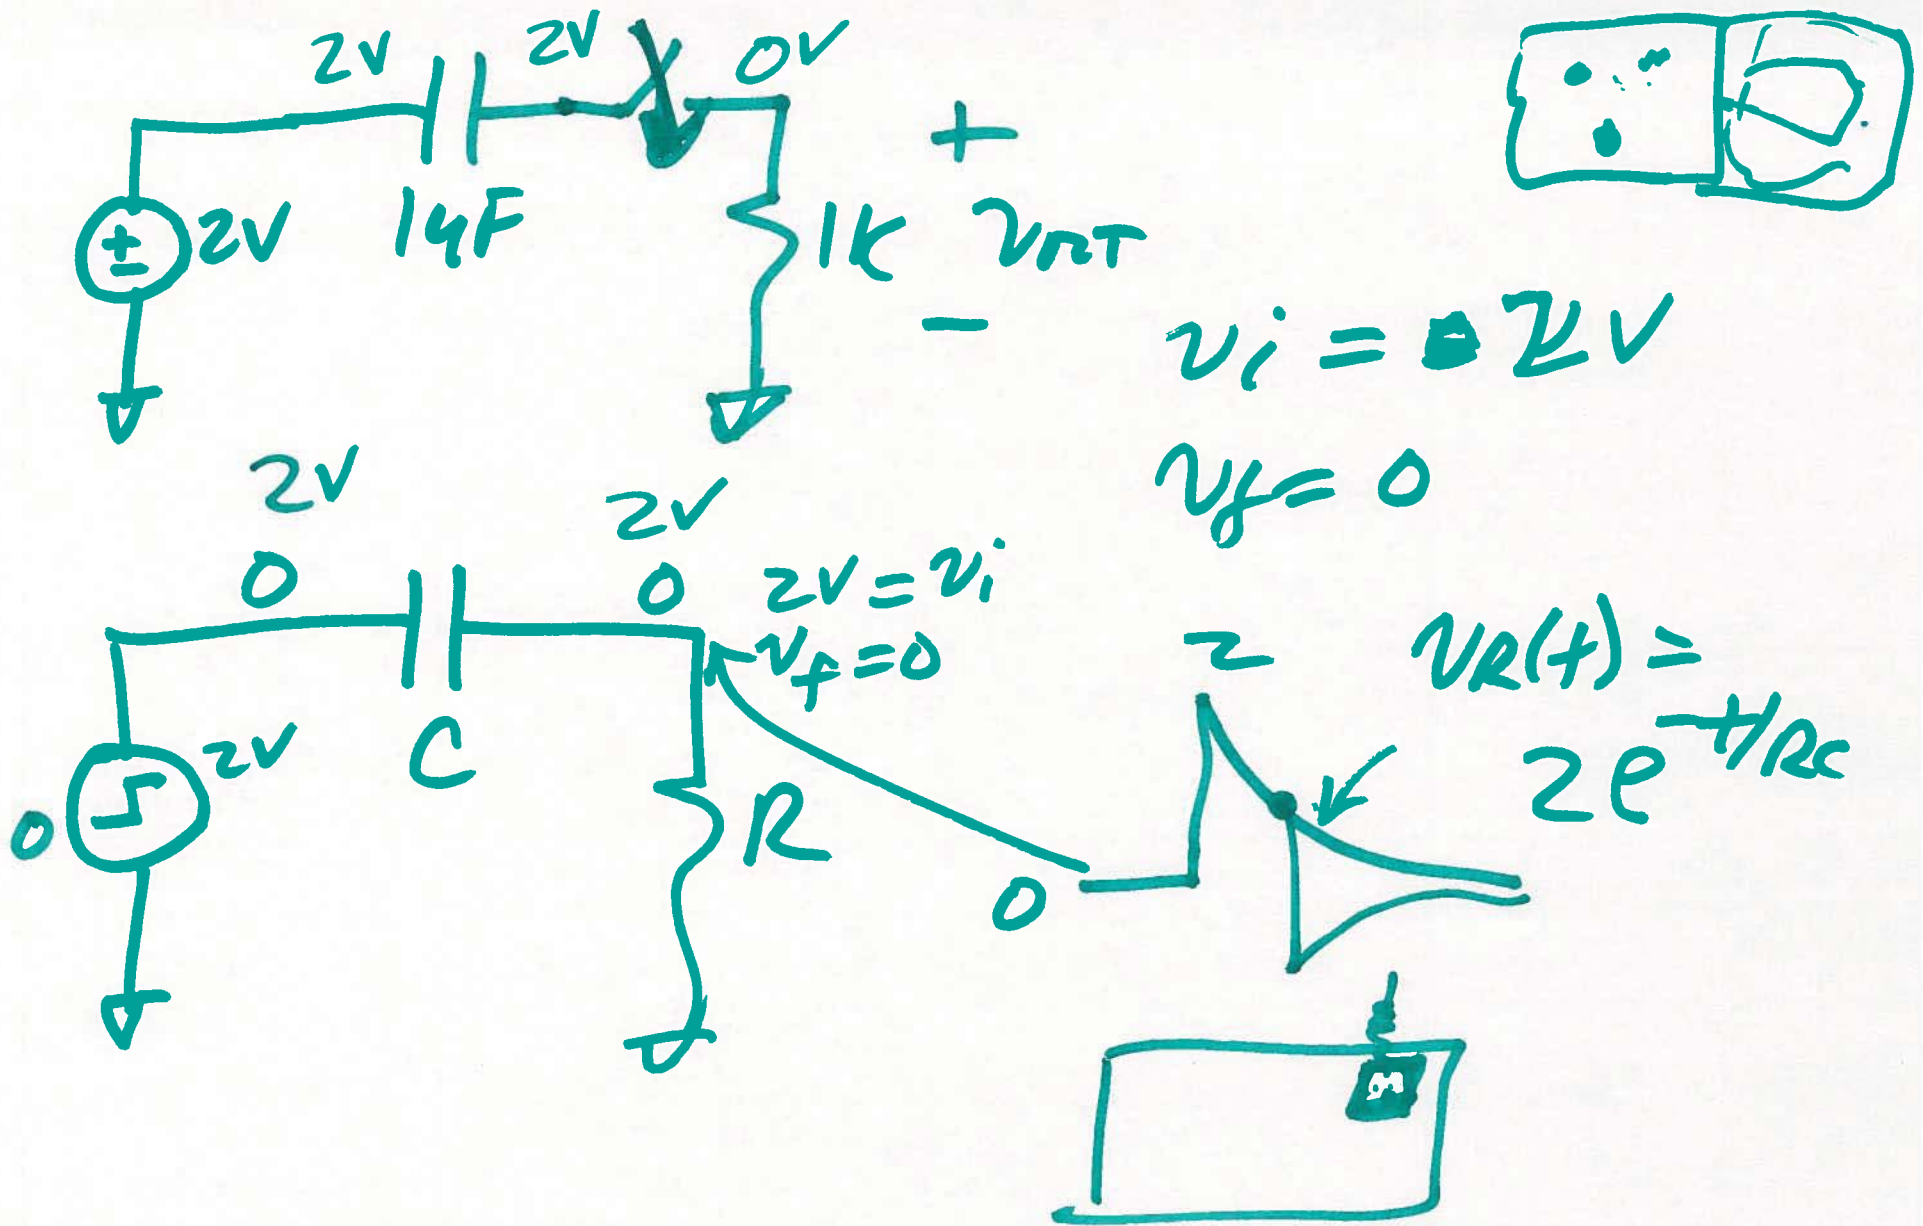 2V 2V 0V
+
2V 1µF 1K
-
vi = 2V
vf = 0
2V 2V
0 0 2V = vi
vf = 0
2V C R
0
2 vR(t) =
2e^-t/RC
0